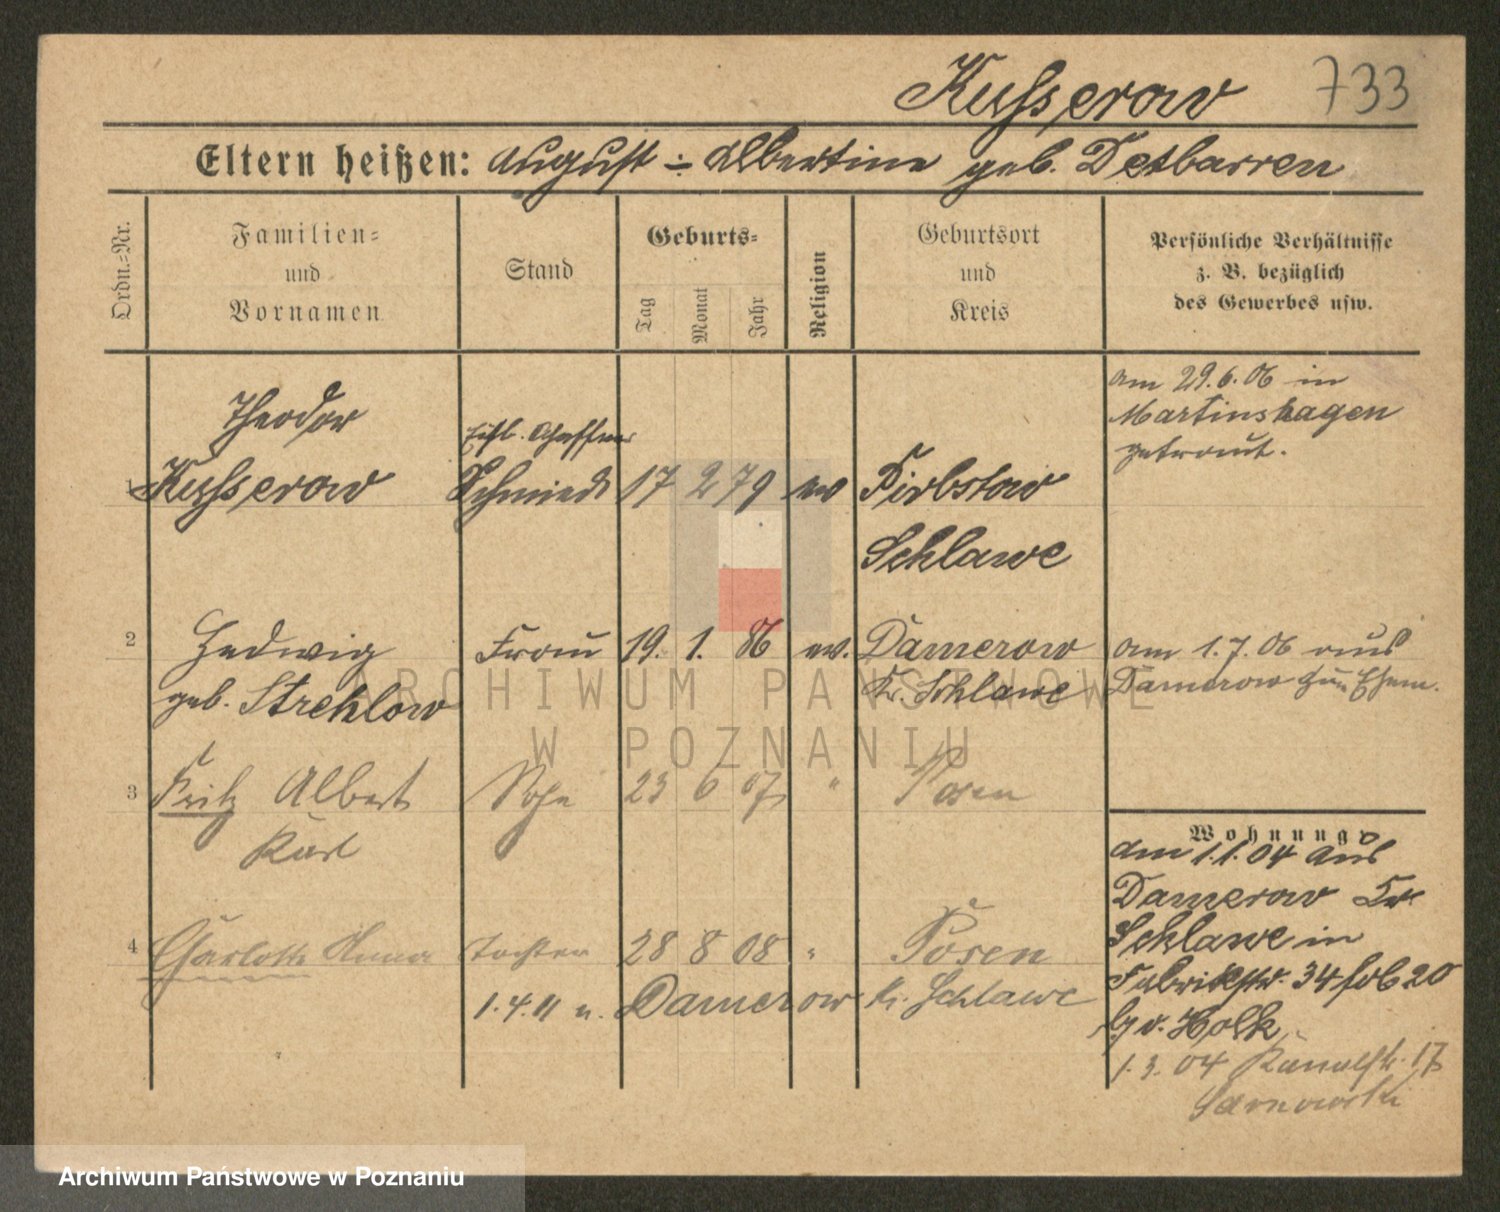 Kusserow 733
Eltern heißen: August ÷ Albertine geb. Detbarren
Ordn.-Nr.
Familien-
und
Vornamen
Stand
Geburts-
Tag
Monat
Jahr
Religion
Geburtsort
und
Kreis
Persönliche Verhältnisse
z. B. bezüglich
des Gewerbes usw.
Theodor
1 Kusserow
Schaffner
Schmied 17 2 79 ev Pirbstow
Schlawe
am 29.6.06 in
Martinshagen
getraut.
2 Hedwig Frau 19. 1. 86 ev. Damerow
geb. Strehlow Kr. Schlawe
am 1.7.06 aus
Damerow zum Ehem.
3 Fritz Albert Sohn 23 6 07 " Posen
Karl
4 Charlotte Anna Tochter 28 8 08 " Posen
1.4.11 n. Damerow Kr. Schlawe
Wohnung
am 1.1.04 aus
Damerow Kr.
Schlawe in
Fabrikstr. 34 20
b/ v. Holk
1.3.04 Kanalstr. 17
Sarnowski
ARCHIWUM PAŃSTWOWE
W POZNANIU
Archiwum Państwowe w Poznaniu